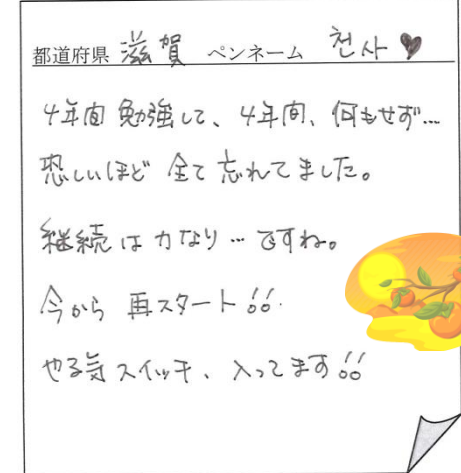 都道府県 滋賀 ペンネーム 천사♥
4年間勉強して、4年間、何もせず…
恐しいほど 全て忘れてました。
継続は力なり…ですね。
今から 再スタート!!
やる気スイッチ、入ってます!!